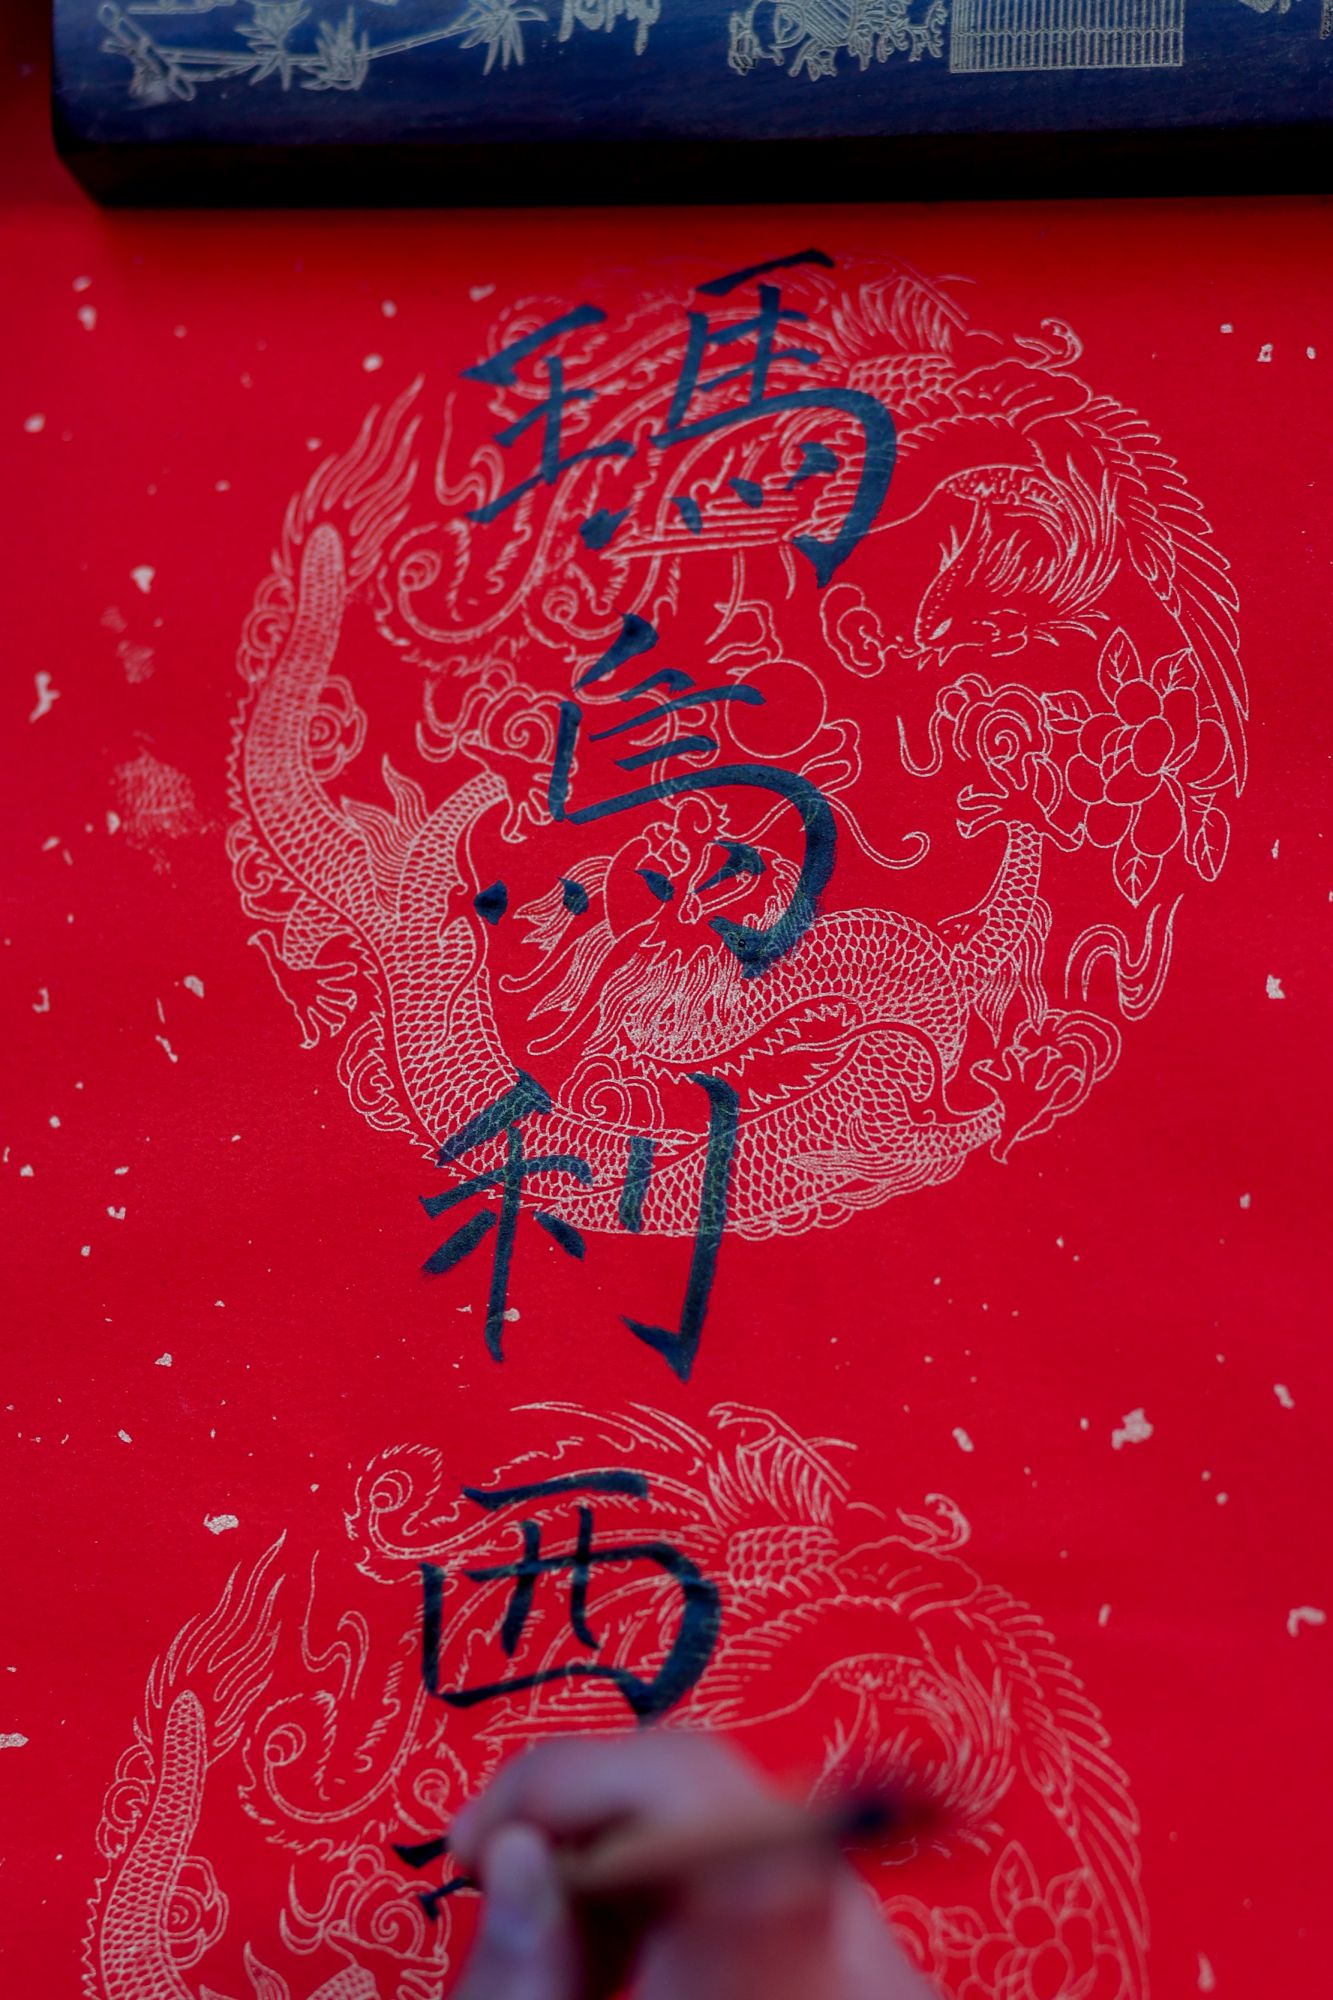 瑪烏利西